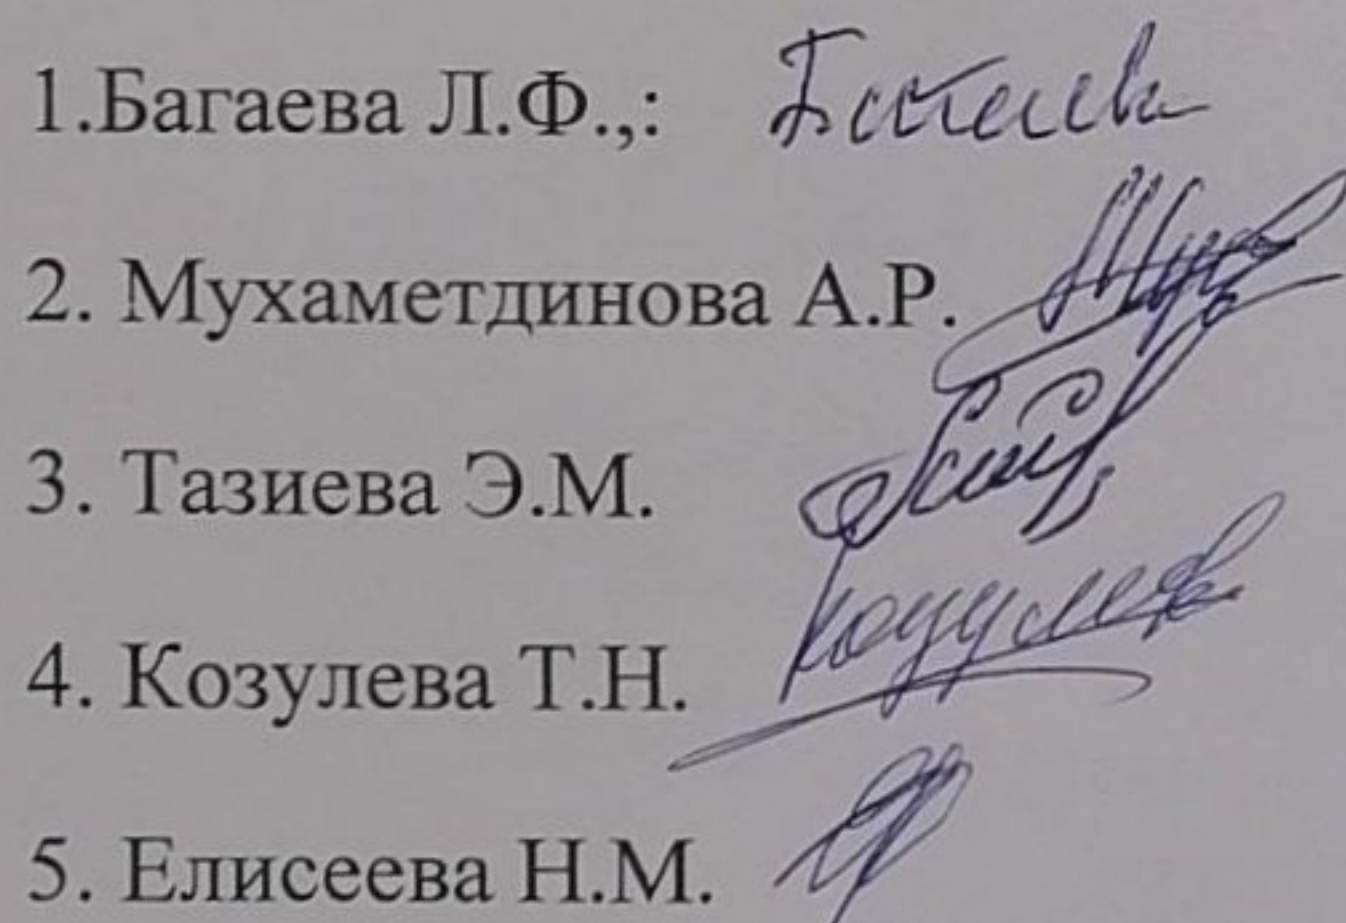 1.Багаева Л.Ф.,: Багаева
2. Мухаметдинова А.Р.
3. Тазиева Э.М.
4. Козулева Т.Н.
5. Елисеева Н.М.